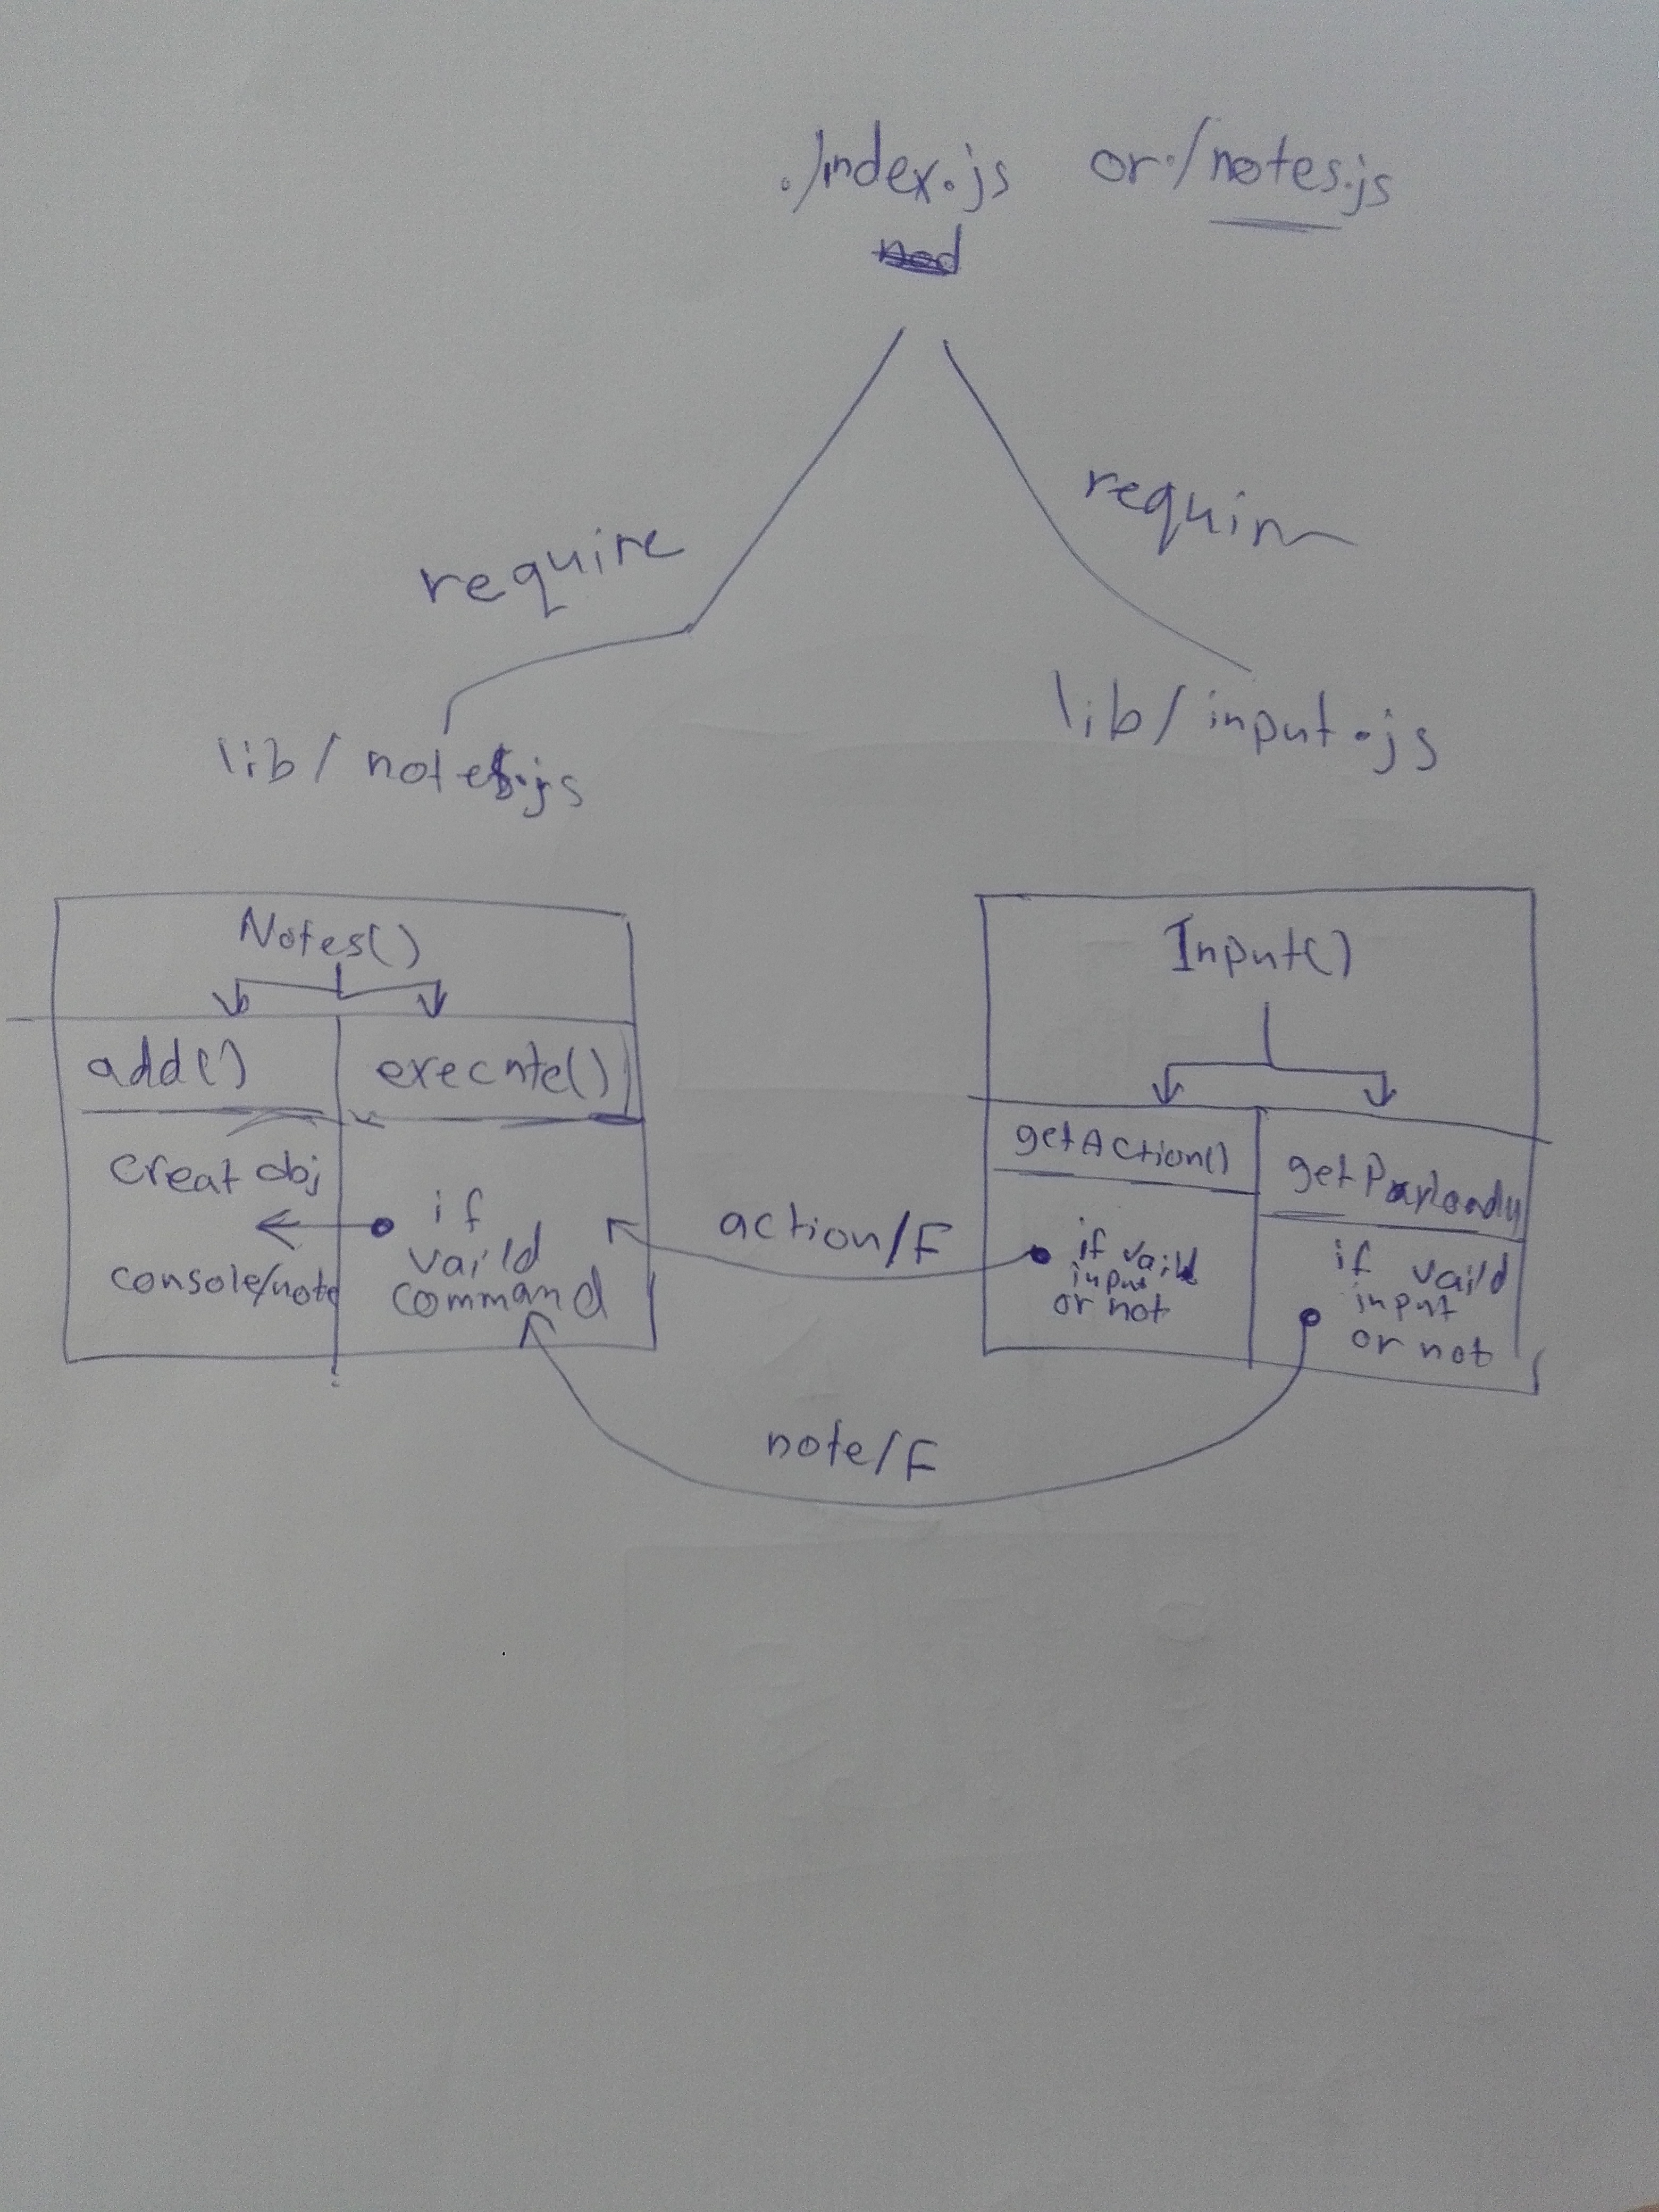 ./index.js or ./notes.js
require
requir
lib/notes.js
lib/input.js
Notes()
add()
execute()
creat obj
console/note
if
vaild
command
action/F
note/F
Input()
getAction()
if vaild
input
or not
if vaild
input
or not